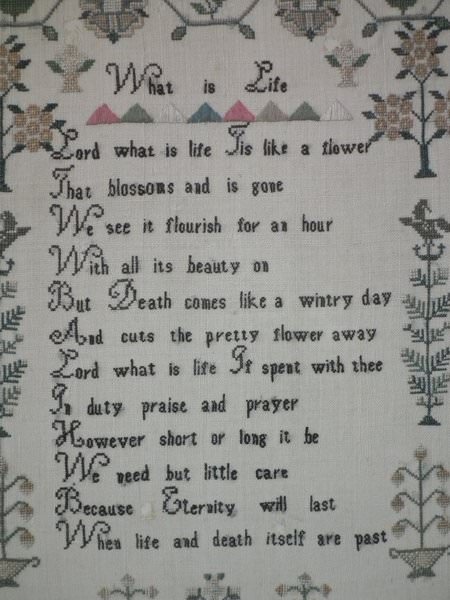 What is Life
Lord what is life Tis like a flower
That blossoms and is gone
We see it flourish for an hour
With all its beauty on
But Death comes like a wintry day
And cuts the pretty flower away
Lord what is life If spent with thee
In duty praise and prayer
However short or long it be
We need but little care
Because Eternity will last
When life and death itself are past